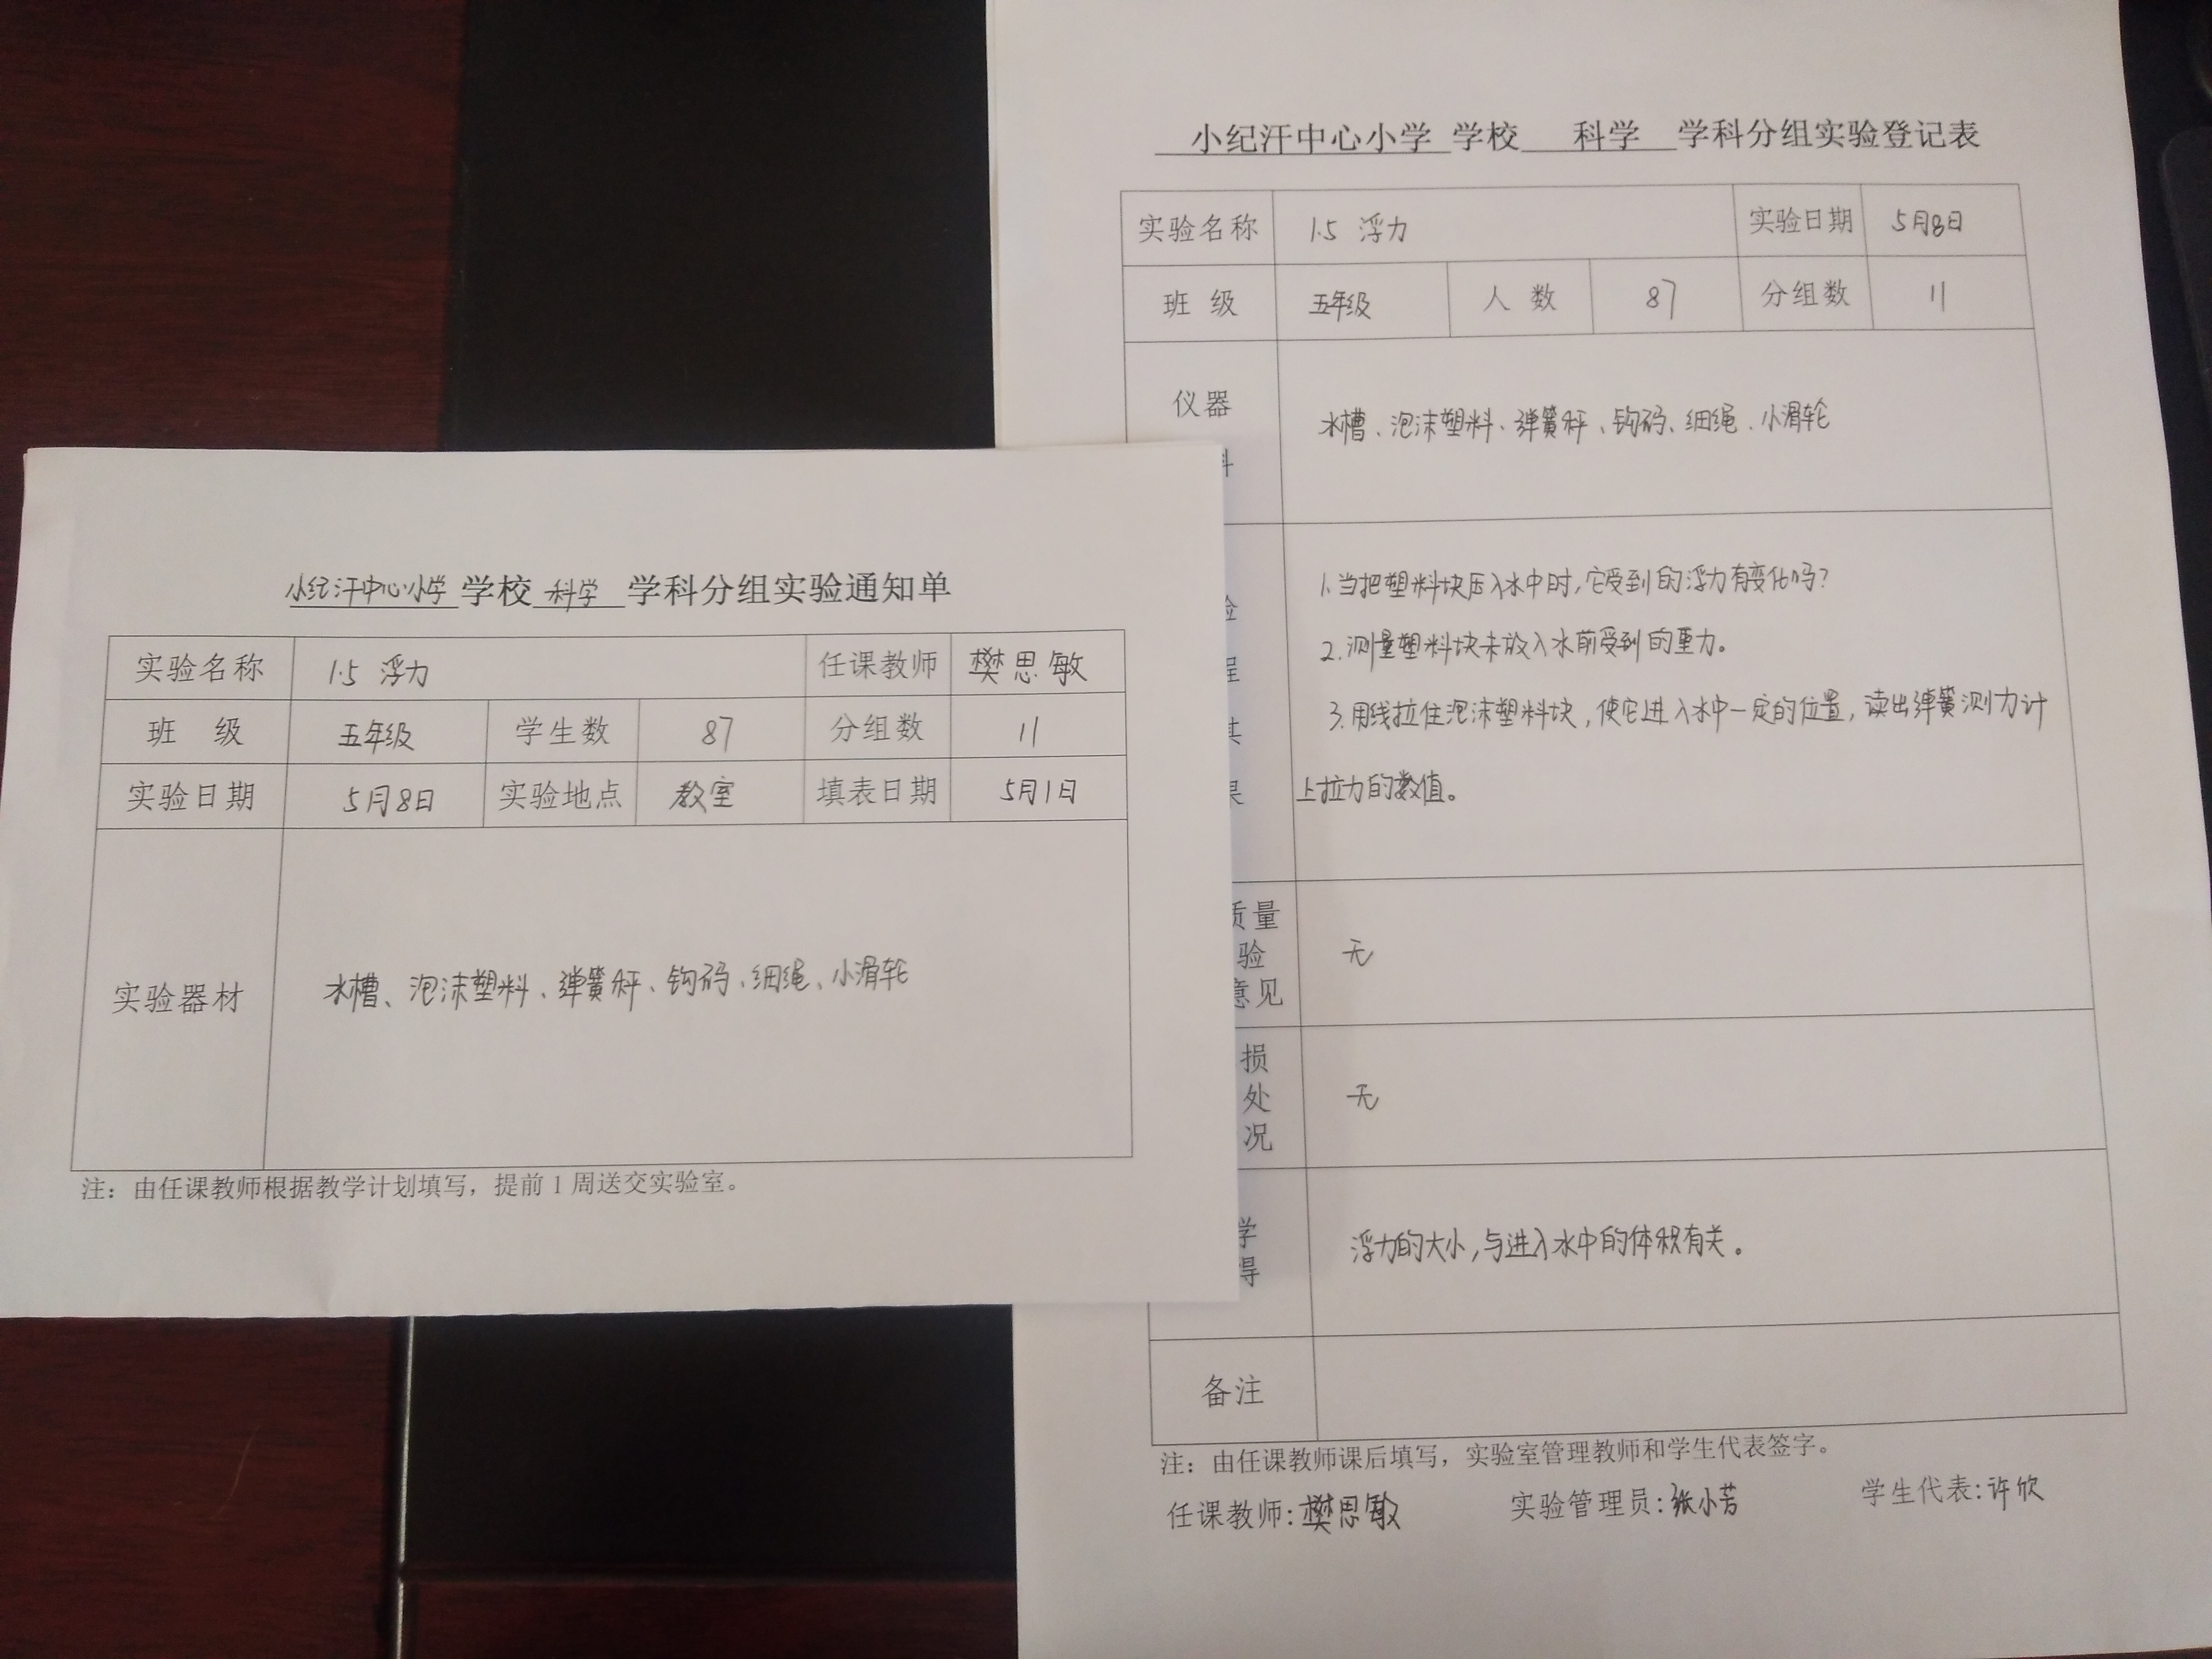 小纪汗中心小学 学校 科学 学科分组实验通知单
实验名称 1.5 浮力 任课教师 樊思敏
班 级 五年级 学生数 87 分组数 11
实验日期 5月8日 实验地点 教室 填表日期 5月1日
实验器材 水槽、泡沫塑料、弹簧秤、钩码、细绳、小滑轮
注：由任课教师根据教学计划填写，提前1周送交实验室。
小纪汗中心小学 学校 科学 学科分组实验登记表
实验名称 1.5 浮力 实验日期 5月8日
班 级 五年级 人 数 87 分组数 11
仪器
水槽、泡沫塑料、弹簧秤、钩码、细绳、小滑轮
1.当把塑料块压入水中时，它受到的浮力有变化吗？
2.测量塑料块未放入水前受到的重力。
3.用线拉住泡沫塑料块，使它进入水中一定的位置，读出弹簧测力计
上拉力的数值。
质量
验
意见
无
损
处
况
无
学
得
浮力的大小，与进入水中的体积有关。
备注
注：由任课教师课后填写，实验室管理教师和学生代表签字。
任课教师：樊思敏 实验管理员：张小芳 学生代表：许欣